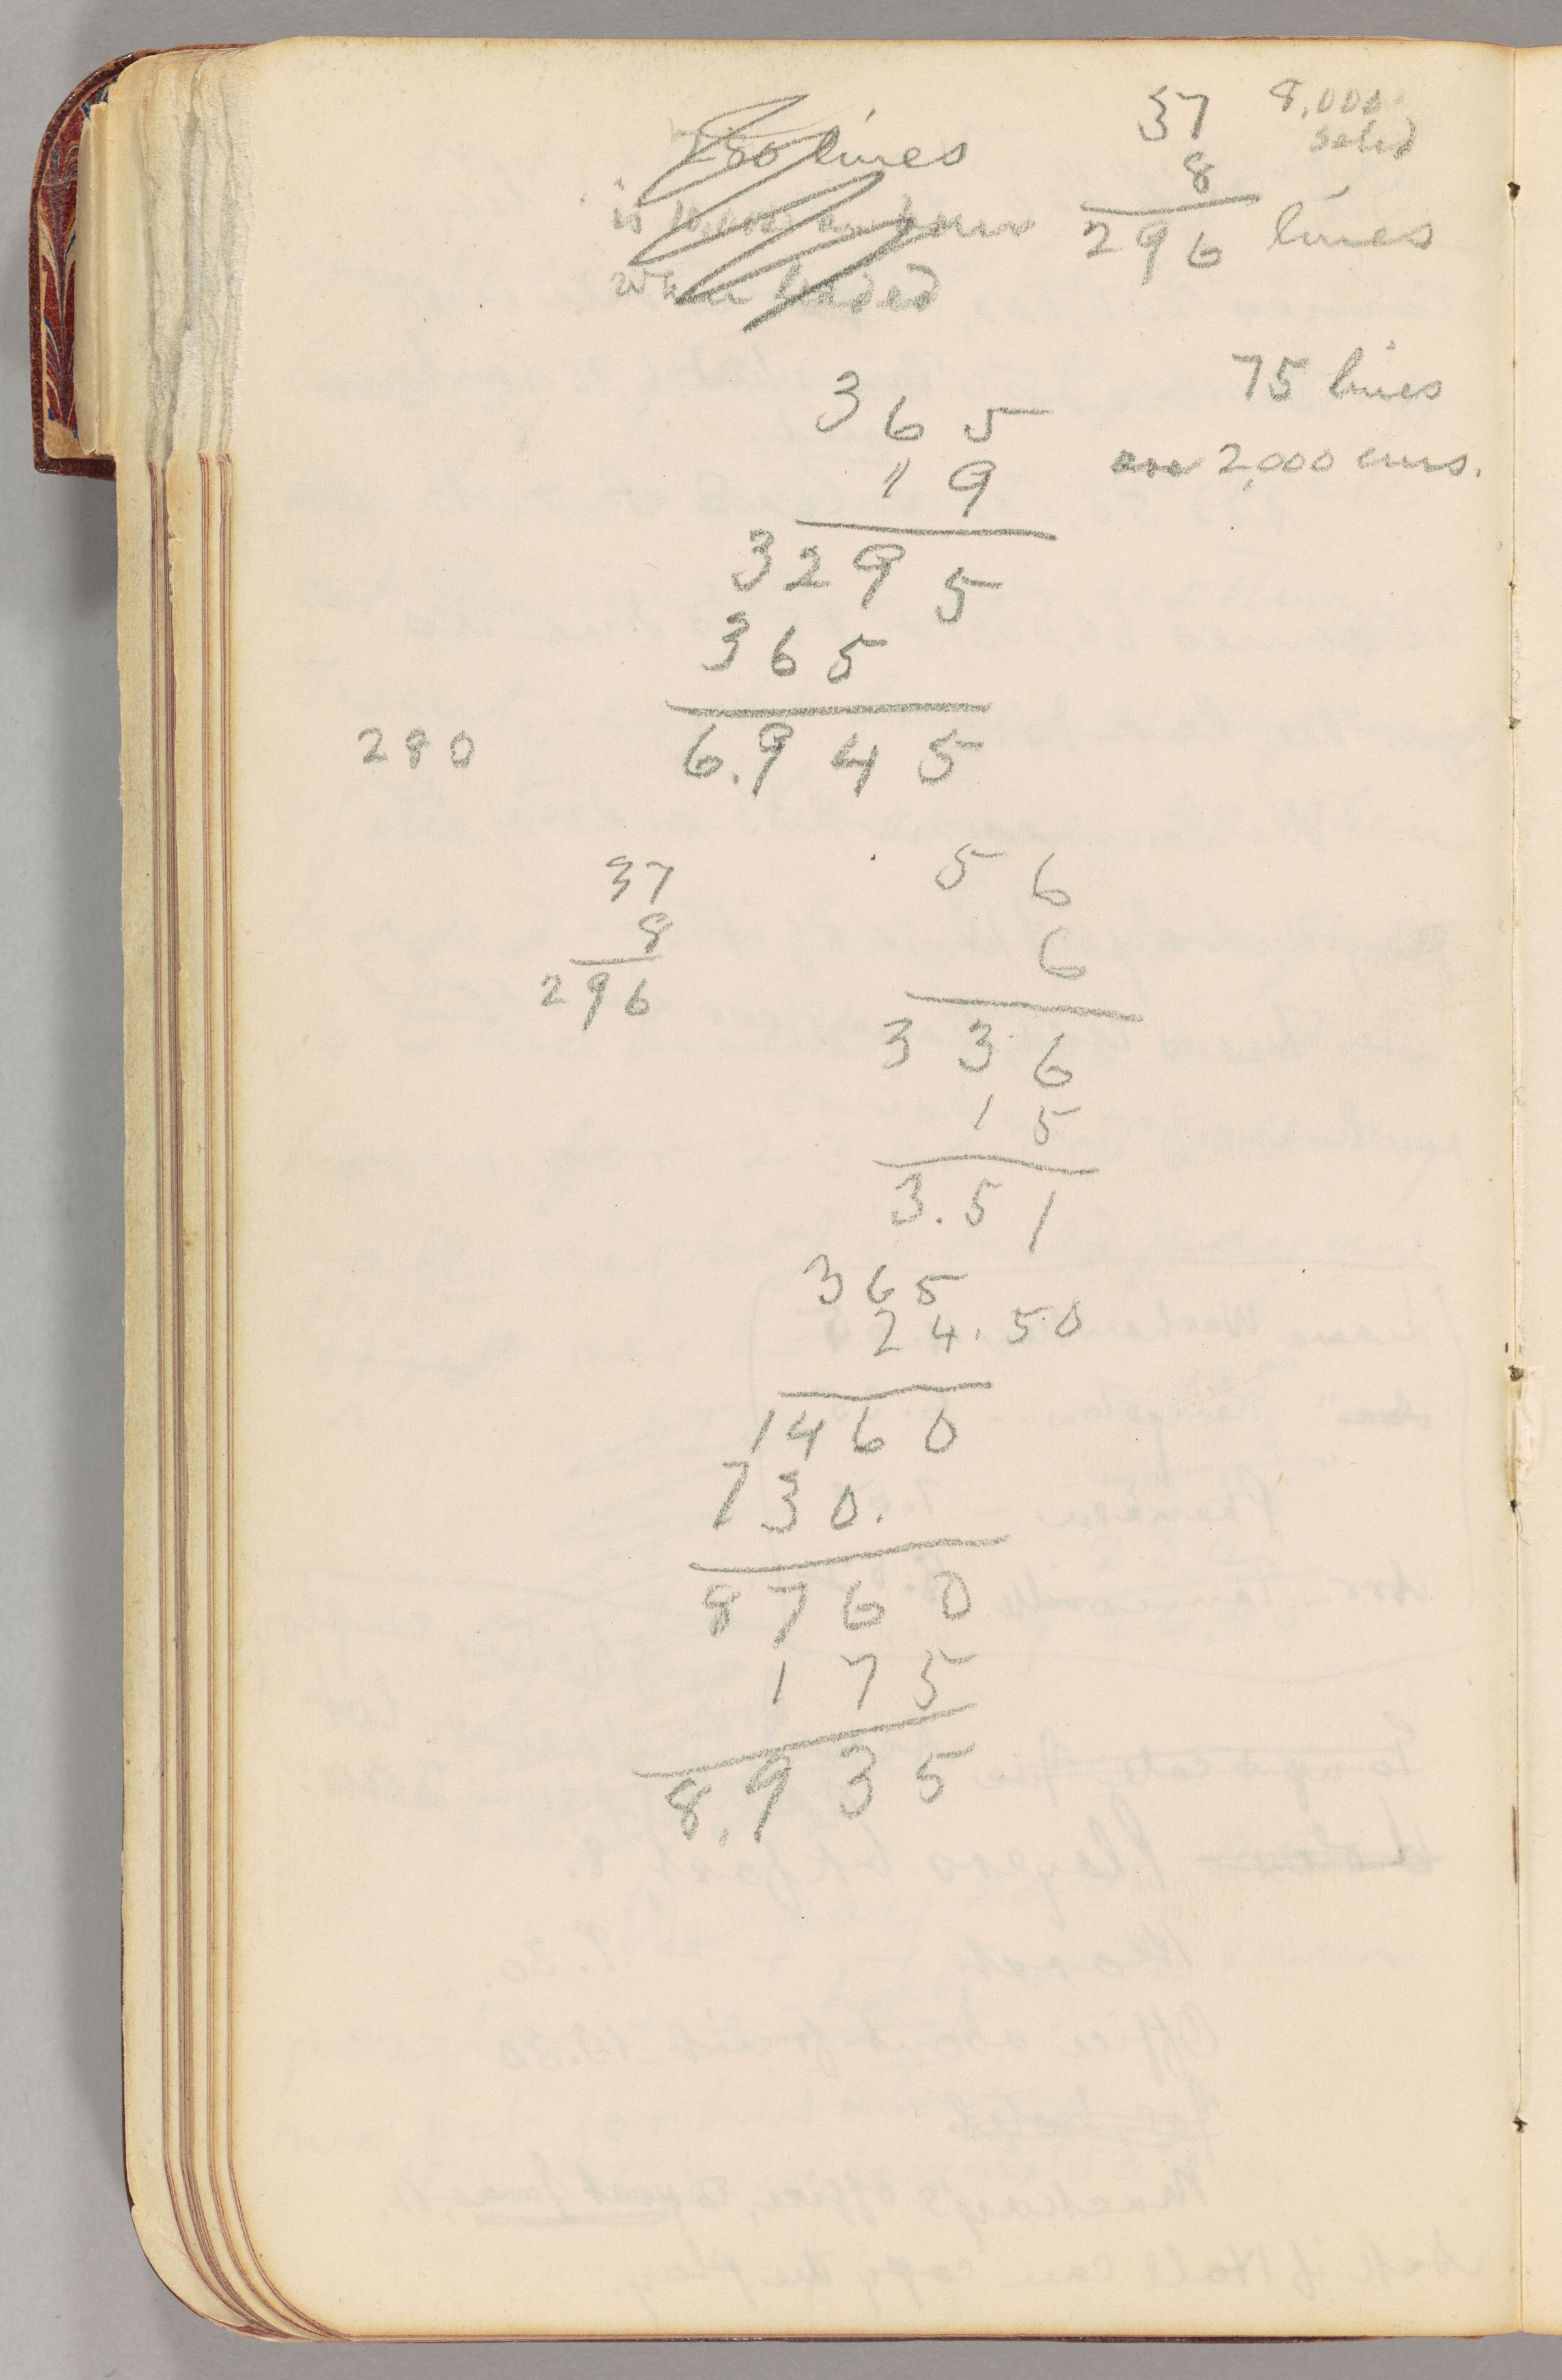 250 lines
is 10,000 an hour
when leaded
37
8
296 lines
8,000
solid
75 lines
are 2,000 ems.
365
19
3295
365
6.945
280
37
8
296
56
6
336
15
3.51
365
24.50
1460
730.
8760
175
8,935